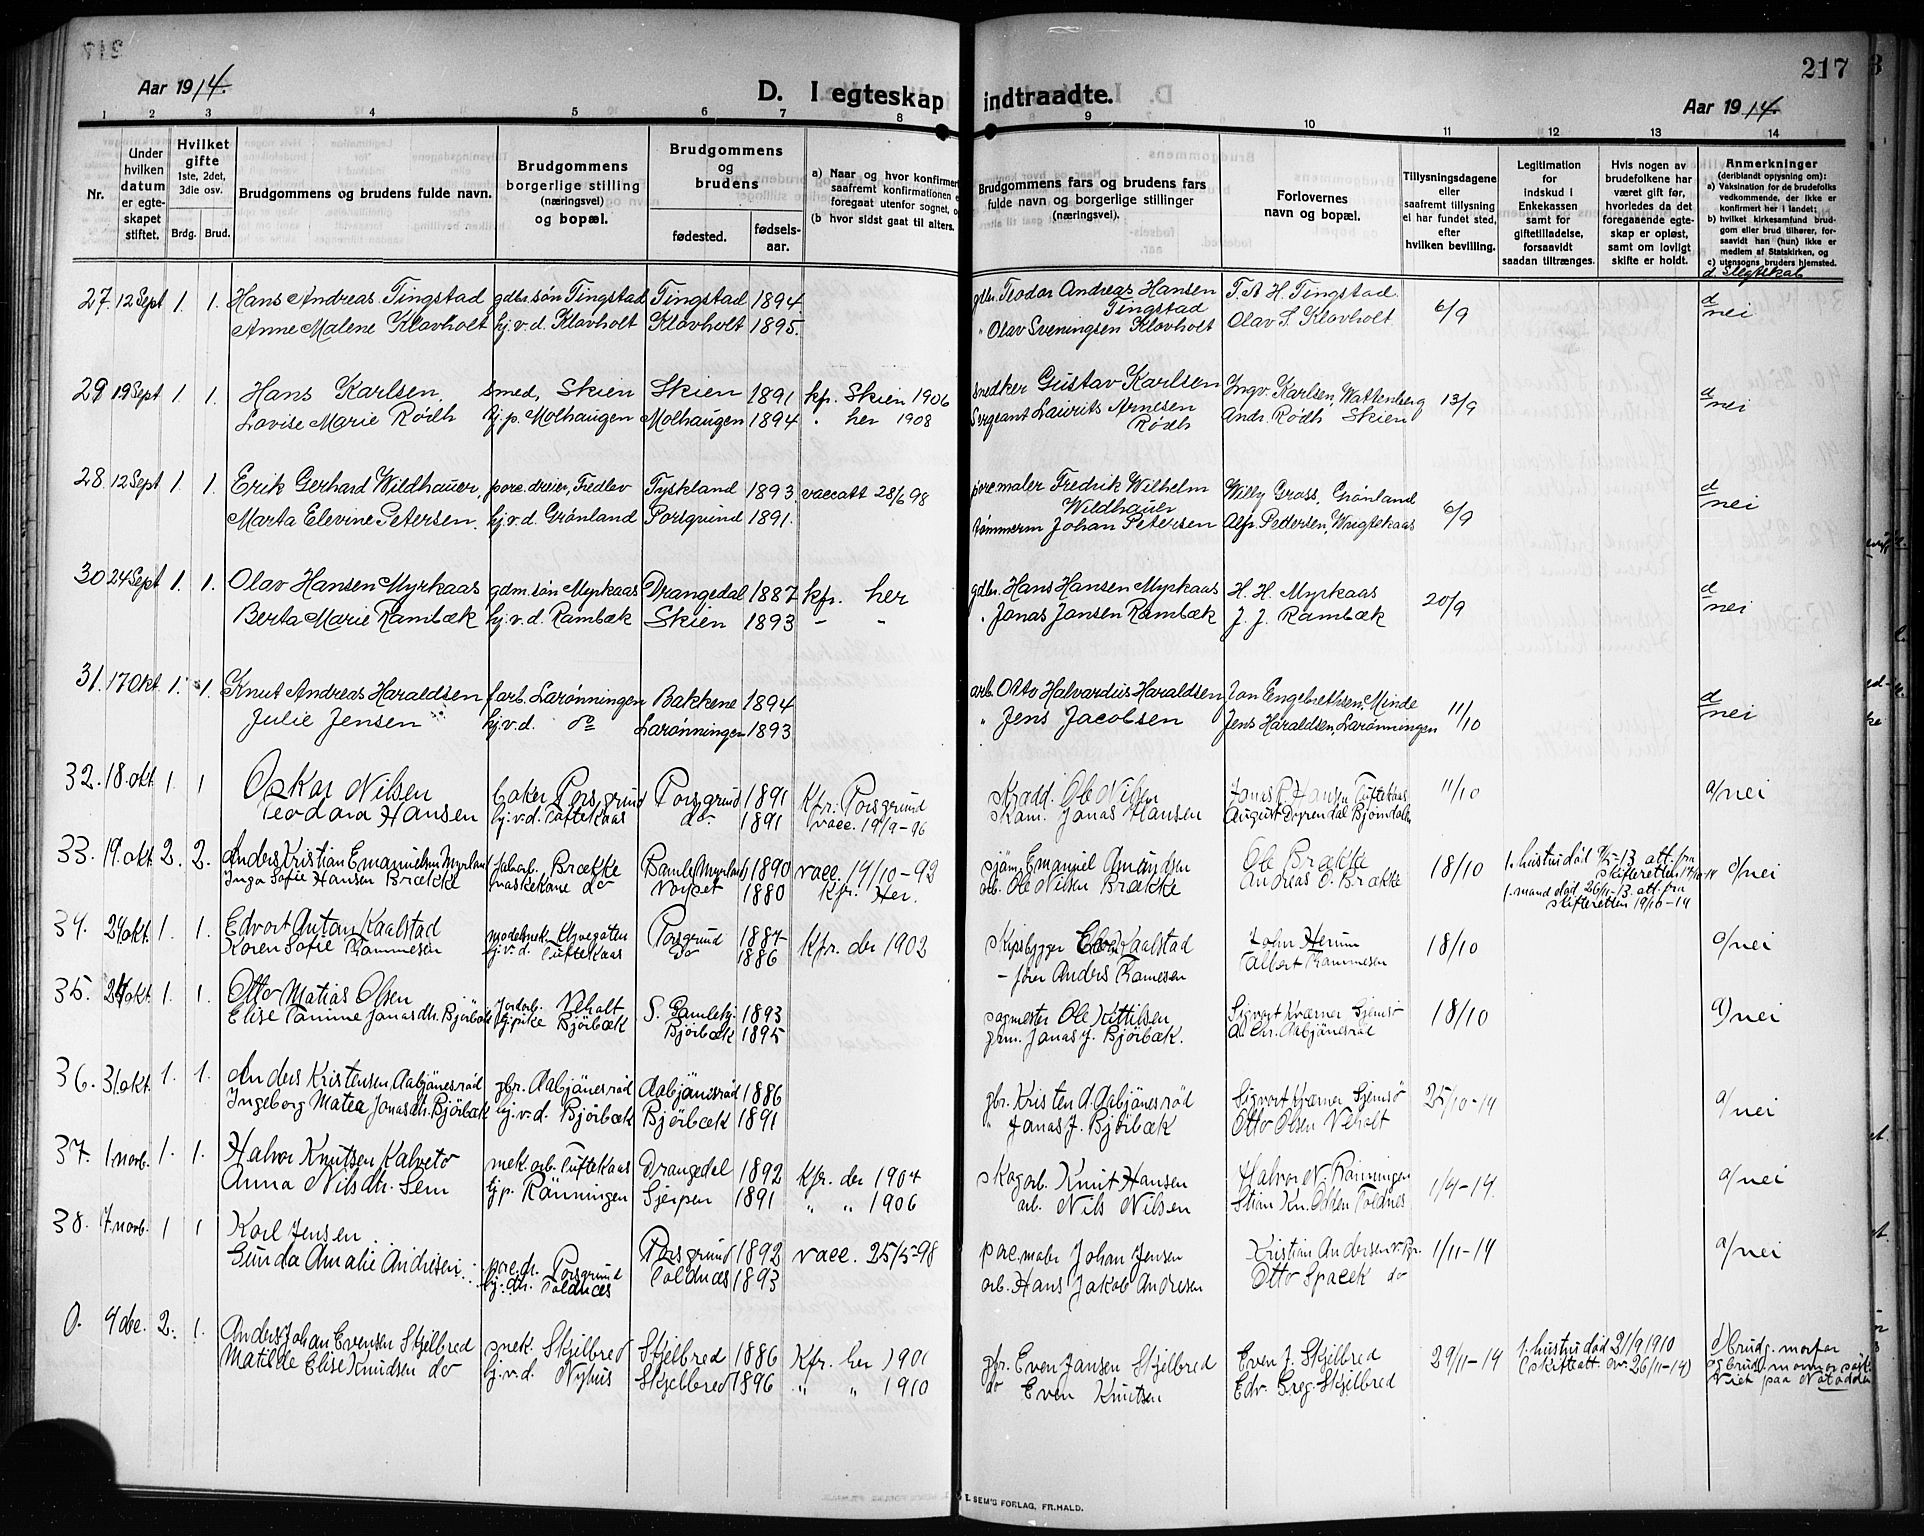 217
Aar 1914.
D. I egteskap indtraadte.
Aar 1914.
1 2 3 4 5 6 7 8 9 10 11 12 13 14
Nr.
Under hvilken datum er egteskapet stiftet.
Hvilket gifte 1ste, 2det, 3die osv.
Brdg. Brud.
Brudgommens og brudens fulde navn.
Brudgommens borgerlige stilling (næringsvei) og bopæl.
Brudgommens og brudens
fødested. fødselsaar.
a) Naar og hvor konfirmert
saafremt konfirmationen e
foregaat utenfor sognet, o
(b hvor sidst gaat til alters.
Brudgommens fars og brudens fars fulde navn og borgerlige stillinger (næringsvei).
Forlovernes navn og bopæl.
Tillysningsdagene eller saafremt tillysning ei har fundet sted, efter hvilken bevilling.
Legitimation for indskud i Enkekassen samt for giftetilladelse, forsaavidt saadan tiltrænges.
Hvis nogen av brudefolkene har været gift før, hvorledes da det foregaaende egteskap er opløst, samt om lovligt skifte er holdt.
Anmerkninger (deriblandt oplysning om):
a) Vaksination for de brudefolks vedkommende, der ikke er konfirmert her i landet;
b) hvilket kirkesamfund brudgom eller brud tilhører, forsaavidt han (hun) ikke er medlem af Statskirken, og
c) utensogns bruders hjemsted.
d. Slegtskab
27. 12 Sept 1. 1. Hans Andreas Tingstad gdbr. søn Tingstad Tingstad 1894. gdbr. Teodor Andreas Hansen Tingstad T. A. H. Tingstad 6/9 d nei
Anne Malene Klovholt hj.v.d. Klovholt Klovholt 1895. " Olav Sveningsen Klovholt Olav S. Klovholt
29 19 Sept 1. 1. Hans Karlsen. Smed, Skien Skien 1891 kfr. Skien 1906 snedker Gustav Karlsen Ingv. Karlsen, Wattenberg 13/9 d nei
Lovise Marie Rødh hj.p. Molhaugen Molhaugen 1894 " her 1908 Sergeant Laurits Arnesen Rødh Andr. Rødh Skien
28. 12 Sept 1. 1. Erik Gerhard Wildhauer, porc. dreier, Fredlev Tyskland 1893. vaccatt 28/6 98 porc maler Fredrik Wilhelm Wildhauer Willy Grass, Grønland 6/9 d nei
Marta Elevine Petersen. hj.v.d. Grønland Porsgrund 1891. tømmerm Johan Petersen Alfr. Pettersen,
30 24 Sept 1. 1. Olav Hansen Myrkaas gdm. søn Myrkaas Drangedal 1887 kfr. her gdbr. Hans Hansen Myrkaas H. H. Myrkaas 20/9 d nei
Berta Marie Rambæk hj.v.d. Rambæk Skien 1893 - " " Jonas Jonsen Rambæk J. J. Rambæk
31. 17 Okt 1. 1. Knut Andreas Haraldsen farb. Larønningen Bakkene 1894 arb. Otto Halvardius Haraldsen Jon Engebrethsen, Minde 11/10 d nei
Julie Jensen hj.v.d. do Larønningen 1893 " Jens Jacobsen Jens Haraldsen, Larønningen
32. 18. okt. 1. 1 Oskar Nilsen baker Porsgrund Porsgrund 1891 Kfr. Porsgrund Skradd. Ole Nilsen Jonas P. Hansen Tuftekaas 11/10 a/nei
Teodora Hansen hj.v.d. Tuftekaas do. 1891 vacc. 19/9-96 Skom. Jonas Hansen August Dyrendal Bjørndalen
33. 19. okt. 2. 2. Anders Kristian Emanuelsen Myrland fabarb. Brække Bamle (Myrland) 1890 vacc. 14/10-92 sjøm. Emanuel Amundsen Ole Brække 18/10 1. hustru død 9/5-13 att. fra skifteretten 17/10-14 a/nei
Inga Sofie Hansen Brække vaskekone do 1880 Kfr. Her. arb. Ole Nilsen Brække Andreas O. Brække 1. mand død 26/11-13 att. fra skifteretten 19/10-14
34. 24 okt. 1. 1. Edvart Anton Kaalstad modelsnek. Porsgrund 1884 Kfr. der 1902 Skipsbygger Kaalstad John Herum 18/10 a/nei
Karen Sofie Rammesen hj.v.d. Tuftekaas do 1886 - fører Anders Ramesen Albert Rammesen
35. 24 okt. 1. 1. Otto Matias Olsen Jordarb. Veholt S. Bamlehj. 1893 sagmester Ole Kittilsen Sigvart Kværner Sjemsø 18/10 a) nei
Elise Tomine Jonasdtr. Bjørbæk hj.pike Bjørbæk Bjørbæk 1895 gbm. Jonas J. Bjørbæk. A. Chr. Aabjønesrød
36. 31. okt. 1. 1. Anders Kristensen Aabjønesrød gbr. Aabjønesrød Aabjønesrød 1886 gbr. Kristen A. Aabjønesrød Sigvart Kværner Sjemsø 25/10-14 a/nei
Ingeborg Matea Jonasdtr. Bjørbæk hj.v.d. Bjørbæk Bjørbæk 1891 " Jonas J. Bjørbæk Otto Olsen Veholt
37. 1. novb. 1. 1. Halvor Knutsen Kalveto mek. arb. Tuftekaas Drangedal 1892 Kfr. der 1904 Skogarb. Knut Hansen Halvor N. Rønningen 1/4-14 a/nei
Anna Nilsdtr. Sem hj.p. Rønningen Gjerpen 1891 " " 1906 arb. Nils Nilsen Stian Kn. Olsen Toldnes
38. 7. novb. 1 1 Karl Jensen porc. dr. Porsgrund Porsgrund 1892 vacc. 25/5-98 porc. maler Johan Jensen Kristian Andersen v. Pgr. 1/11-14 a/nei
Gunda Amalie Andresen hj. dtr. Toldnes Toldnæs 1893 arb. Hans Jakob Andresen Otto Spacek do
0. 4 dec. 2. 1. Anders Johan Evensen Skjelbred snek. Skjelbred Skjelbred 1886 Kfr. her 1901 gbr. Even Jansen Skjelbred Even J. Skjelbred 29/11-14 1. hustru død 21/9 1910 d) brudg. morfar
Matilde Elise Knudsen do hj.v.d. Nyhus Skjelbred 1896 " " 1910 do Even Knutsen Edv. Greg. Skjelbred (skifteatt av 26/11-14) og brud. mormor søsk.
Viet paa Notodden
E. SEM'S FORLAG, FR.HALD.